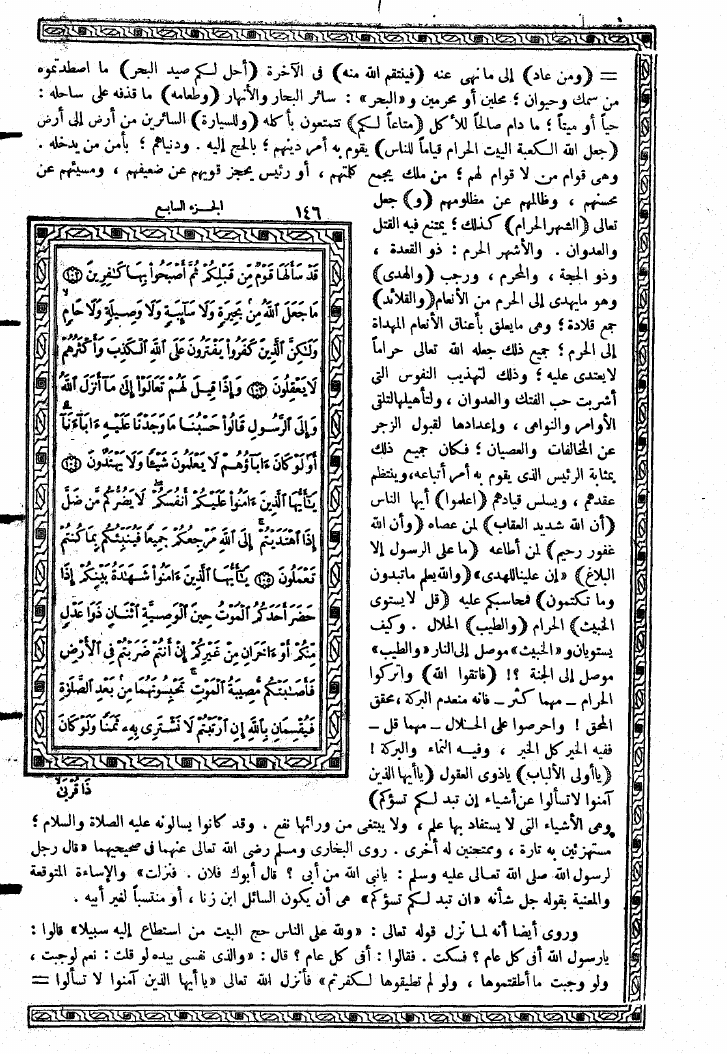 = (ومن عاد) إلى ما نهى عنه (فينتقم الله منه) فى الآخرة (أحل لكم صيد البحر) ما اصطدتموه
من سمك وحيوان ؛ محلين أو محرمين و«البحر» : سائر البحار والأنهار (وطعامه) ما قذفه على ساحله :
حياً أو ميتاً ؛ ما دام صالحاً للأكل (متاعاً لكم) تتمتعون بأكله (وللسيارة) السائرين من أرض إلى أرض
(جعل الله الكعبة البيت الحرام قياماً للناس) يقوم به أمر دينهم ؛ بالحج إليه . ودنياهم ؛ بأمن من يدخله .
وهى قوام من لا قوام لهم ؛ من ملك يجمع كلمتهم ، أو رئيس يحجز قويهم عن ضعيفهم ، ومسيئهم عن
محسنهم ، وظالمهم عن مظلومهم (و) جعل
تعالى (الشهر الحرام) كذلك ؛ يمتنع فيه القتل
والعدوان . والأشهر الحرم : ذو القعدة ،
وذو الحجة ، والمحرم ، ورجب (والهدى)
وهو مايهدى إلى الحرم من الأنعام (والقلائد)
جمع قلادة ؛ وهى مايعلق بأعناق الأنعام المهداة
إلى الحرم ؛ جميع ذلك جعله الله تعالى حراماً
لايعتدى عليه ؛ وذلك لتهذيب النفوس التى
أشربت حب الفتك والعدوان ، ولتأهيلها لتلقى
الأوامر والنواهى ، وإعدادها لقبول الزجر
عن المخالفات والعصيان ؛ فكان جميع ذلك
بمثابة الرئيس الذى يقوم به أمر أتباعه، وينتظم
عقدهم ، ويسلس قيادهم (اعلموا) أيها الناس
(أن الله شديد العقاب) لمن عصاه (وأن الله
غفور رحيم) لمن أطاعه (ما على الرسول إلا
البلاغ) «إن علينا للهدى» (والله يعلم ماتبدون
وما تكتمون) فمحاسبكم عليه (قل لايستوى
الخبيث) الحرام (والطيب) الحلال . وكيف
يستويان و«الخبيث» موصل إلى النار «والطيب»
موصل إلى الجنة ؟! (فاتقوا الله) واتركوا
الحرام - مهما كثر - فانه منعدم البركة ، محقق
المحق ! واحرصوا على الحلال - مهما قل -
ففيه الخير كل الخير ، وفيه النماء والبركة !
(ياأولى الألباب) ياذوى العقول (ياأيها الذين
آمنوا لاتسألوا عن أشياء إن تبد لكم تسؤكم)
وهى الأشياء التى لا يستفاد بها علم ، ولا يبتغى من ورائها نفع . وقد كانوا يسألونه عليه الصلاة والسلام ؛
مستهزئين به تارة ، وممتحنين له أخرى . روى البخارى ومسلم رضى الله تعالى عنهما فى صحيحيهما «قال رجل
لرسول الله صلى الله تعالى عليه وسلم : يانبى الله من أبى ؟ قال أبوك فلان . فنزلت» والإساءة المتوقعة
والمعنية بقوله جل شأنه «ان تبد لكم تسؤكم» هى أن يكون السائل ابن زنا ، أو منتسباً لغير أبيه .
وروى أيضا أنه لما نزل قوله تعالى : «ولله على الناس حج البيت من استطاع إليه سبيلا» قالوا :
يارسول الله أفى كل عام ؟ فسكت . فقالوا : أفى كل عام ؟ قال : «والذى نفسى بيده لو قلت : نعم لوجبت ،
ولو وجبت ما أطقتموها ، ولو لم تطيقوها لكفرتم» فأنزل الله تعالى «ياأيها الذين آمنوا لا تسألوا =
١٤٦ الجزء السابع
قَدْ سَأَلَهَا قَوْمٌ مِّن قَبْلِكُمْ ثُمَّ أَصْبَحُوا۟ بِهَا كَٰفِرِينَ ١٠٢
مَا جَعَلَ ٱللَّهُ مِنۢ بَحِيرَةٍ وَلَا سَآئِبَةٍ وَلَا وَصِيلَةٍ وَلَا حَامٍ
وَلَٰكِنَّ ٱلَّذِينَ كَفَرُوا۟ يَفْتَرُونَ عَلَى ٱللَّهِ ٱلْكَذِبَ وَأَكْثَرُهُمْ
لَا يَعْقِلُونَ ١٠٣ وَإِذَا قِيلَ لَهُمْ تَعَالَوْا۟ إِلَىٰ مَآ أَنزَلَ ٱللَّهُ
وَإِلَى ٱلرَّسُولِ قَالُوا۟ حَسْبُنَا مَا وَجَدْنَا عَلَيْهِ ءَابَآءَنَآ
أَوَلَوْ كَانَ ءَابَآؤُهُمْ لَا يَعْلَمُونَ شَيْـًٔا وَلَا يَهْتَدُونَ ١٠٤
يَٰٓأَيُّهَا ٱلَّذِينَ ءَامَنُوا۟ عَلَيْكُمْ أَنفُسَكُمْ لَا يَضُرُّكُم مَّن ضَلَّ
إِذَا ٱهْتَدَيْتُمْ إِلَى ٱللَّهِ مَرْجِعُكُمْ جَمِيعًا فَيُنَبِّئُكُم بِمَا كُنتُمْ
تَعْمَلُونَ ١٠٥ يَٰٓأَيُّهَا ٱلَّذِينَ ءَامَنُوا۟ شَهَٰدَةُ بَيْنِكُمْ إِذَا
حَضَرَ أَحَدَكُمُ ٱلْمَوْتُ حِينَ ٱلْوَصِيَّةِ ٱثْنَانِ ذَوَا عَدْلٍ
مِّنكُمْ أَوْ ءَاخَرَانِ مِنْ غَيْرِكُمْ إِنْ أَنتُمْ ضَرَبْتُمْ فِى ٱلْأَرْضِ
فَأَصَٰبَتْكُم مُّصِيبَةُ ٱلْمَوْتِ تَحْبِسُونَهُمَا مِنۢ بَعْدِ ٱلصَّلَوٰةِ
فَيُقْسِمَانِ بِٱللَّهِ إِنِ ٱرْتَبْتُمْ لَا نَشْتَرِى بِهِۦ ثَمَنًا وَلَوْ كَانَ
ذَا قُرْبَىٰ